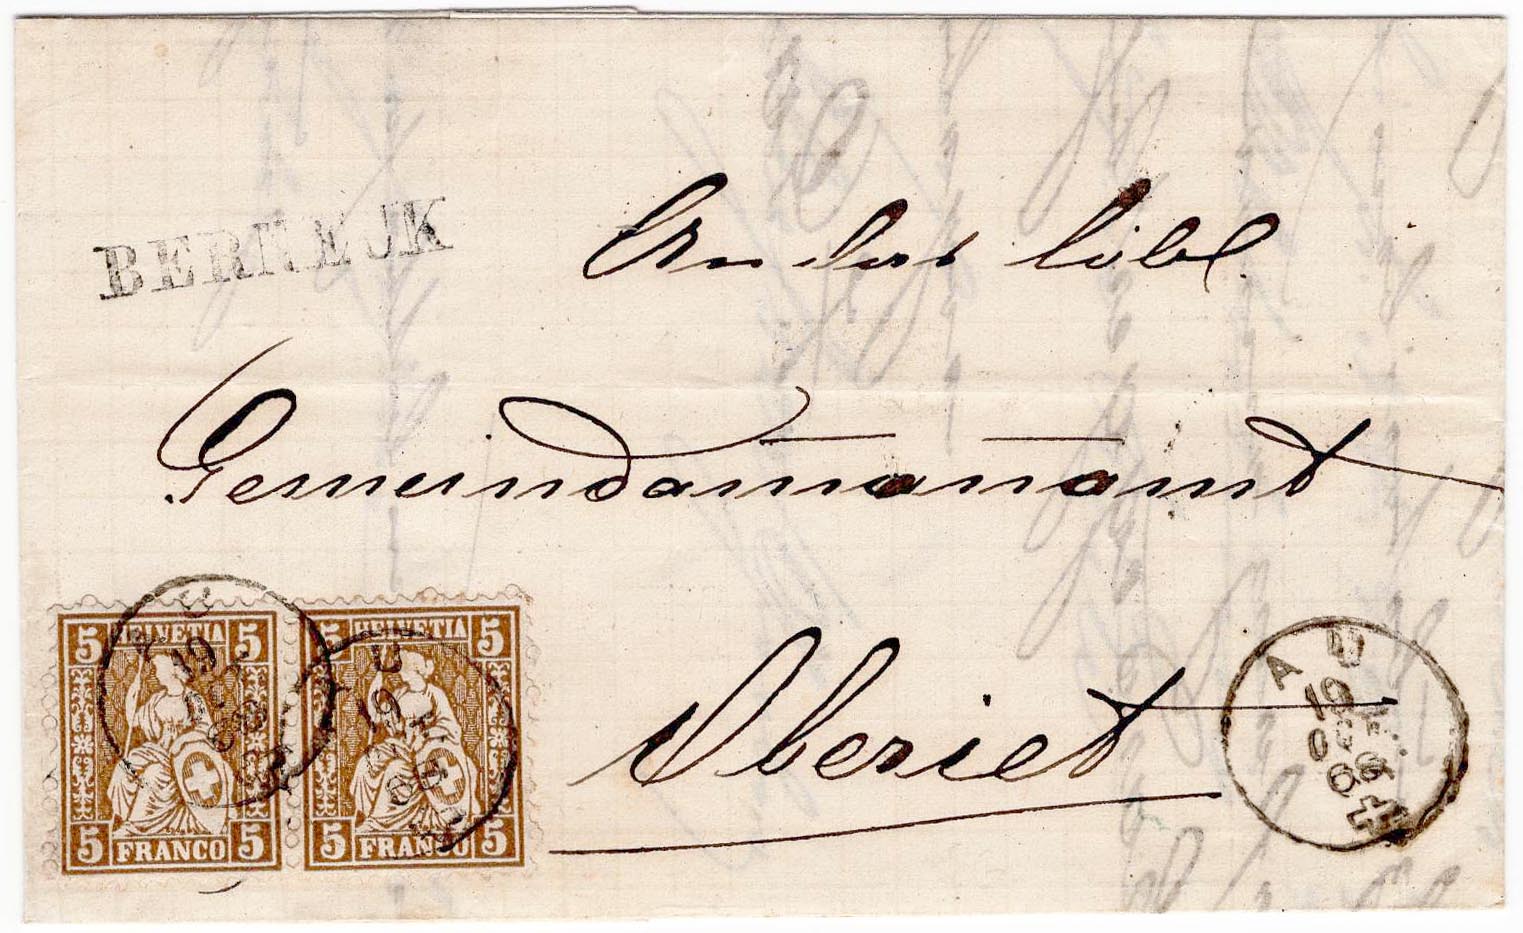 BERNEJK
An das löbl.
Gemeindammannamt
Oberiet
5 HELVETIA 5
5 FRANCO 5
5 HELVETIA 5
5 FRANCO 5
AU
19
AU
19
AU
19